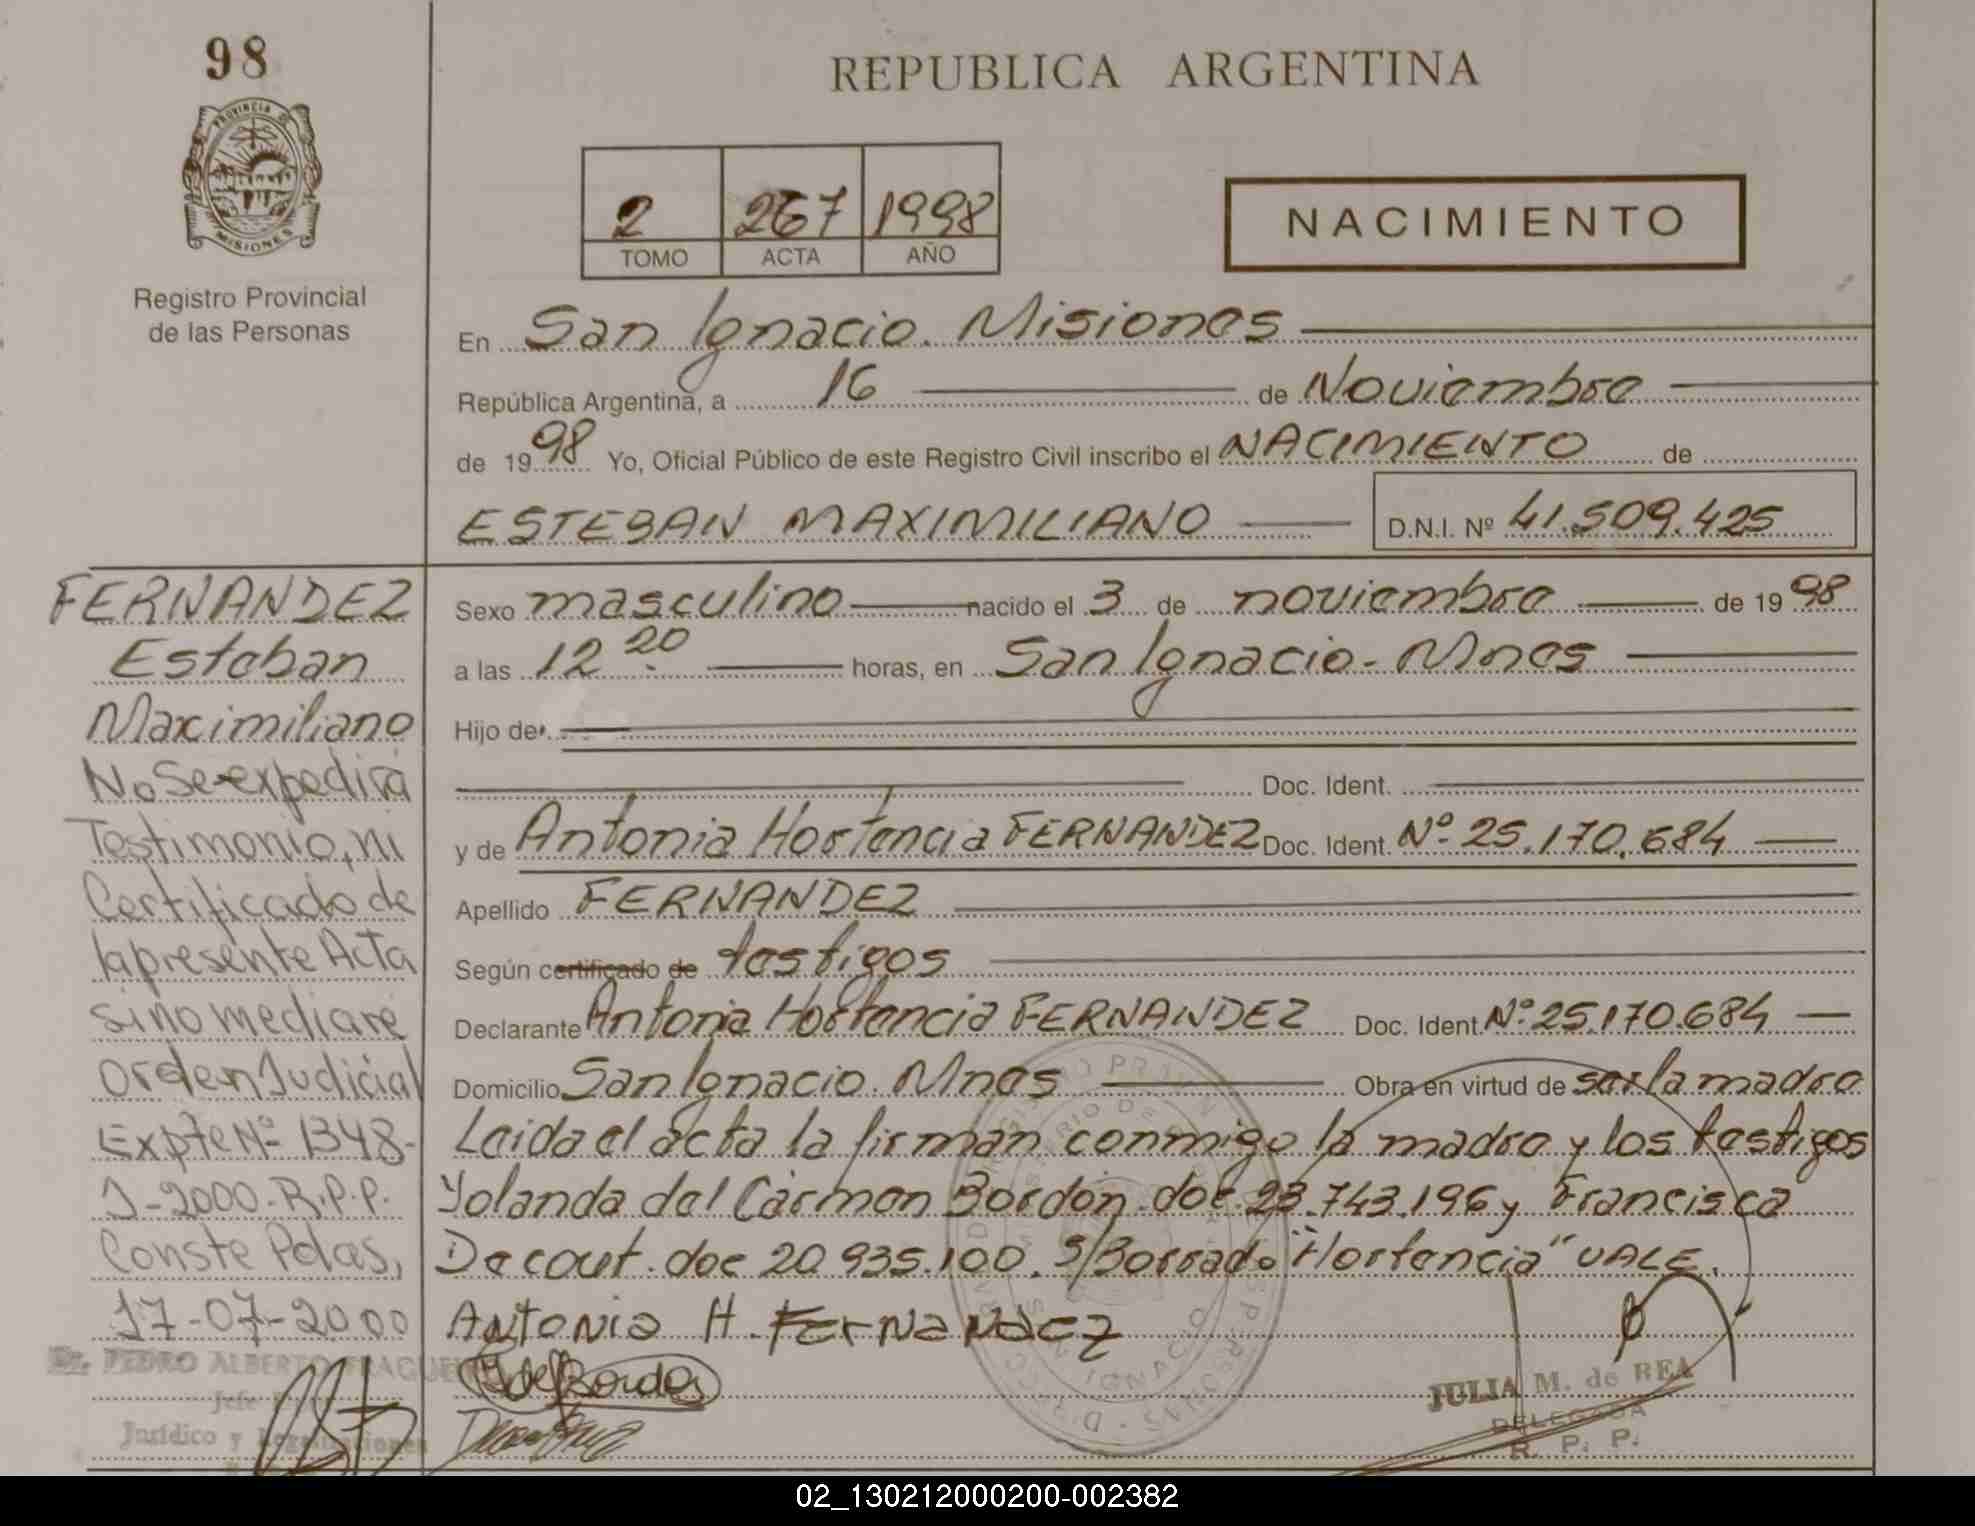 98
PROVINCIA DE
MISIONES
Registro Provincial
de las Personas
REPUBLICA ARGENTINA
2 267 1998
TOMO ACTA AÑO
NACIMIENTO
En San Ignacio. Misiones
República Argentina, a 16 de Noviembre
de 1998 Yo, Oficial Público de este Registro Civil inscribo el NACIMIENTO de
ESTEBAN MAXIMILIANO D.N.I. Nº 41.509.425
Sexo masculino nacido el 3 de noviembre de 1998
a las 12 20 horas, en San Ignacio - Mnes
Hijo de
Doc. Ident.
y de Antonia Hortencia FERNANDEZ Doc. Ident. Nº 25.170.684
Apellido FERNANDEZ
Según certificado de testigos
Declarante Antonia Hortencia FERNANDEZ Doc. Ident. Nº 25.170.684
Domicilio San Ignacio. Mnes Obra en virtud de ser la madre
Leida el acta la firman conmigo la madre y los testigos
Yolanda del Carmen Bordón doc. 23.743.196 y Francisca
Decout. doc 20.935.100. S/Borrado "Hortencia" VALE.
Antonia H. Fernandez
JULIA M. de REA
DELEGADA
R. P. P.
FERNANDEZ
Esteban
Maximiliano
No Se expedirá
Testimonio, ni
Certificado de
la presente Acta
sino mediare
Orden Judicial
Expte Nº 1348-
J-2000-R.P.P.
Conste Pdas,
17-07-2000
Dr. PEDRO ALBERTO
Jefe
Jurídico y
02_130212000200-002382